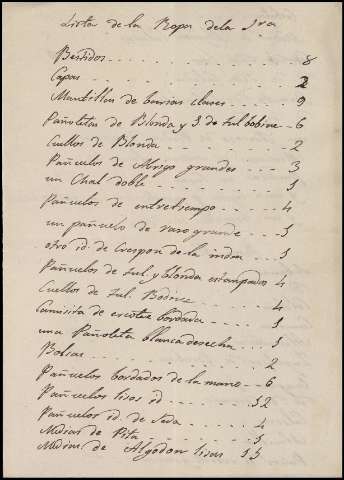 Lista de la Ropa de la Sra
Bestidos - - - - - 8
Capas - - - - - 2
Mantillas de barias clases - - - 9
Pañoletas de Blonda y 3 de tul bobine - 6
Cuellos de Blonda - - - - 2
Pañuelos de Abrigo grandes - - - 3
un Chal doble - - - - - 1
Pañuelos de entretiempo - - - - 4
un pañuelo de raso grande - - - 1
otro id. de Crespon de la india - - 1
Pañuelos de tul y blonda estampados 4
Cuellos de tul Bobine - - - - 4
Camisita de escote bordada - - - 1
una Pañoleta blanca desecha - - 1
Bolsas - - - - - 2
Pañuelos bordados de la mano - - 6
Pañuelos lisos id - - - - 12
Pañuelos id. de Seda - - - - 4
Medias de Pita - - - - 1
Medias de Algodon lisas 15